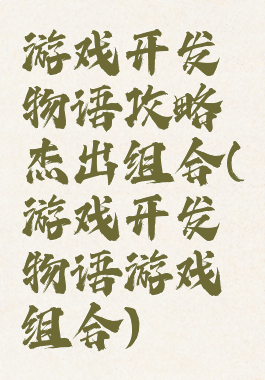 游戏开发
物语攻略
杰出组合(
游戏开发
物语游戏
组合)